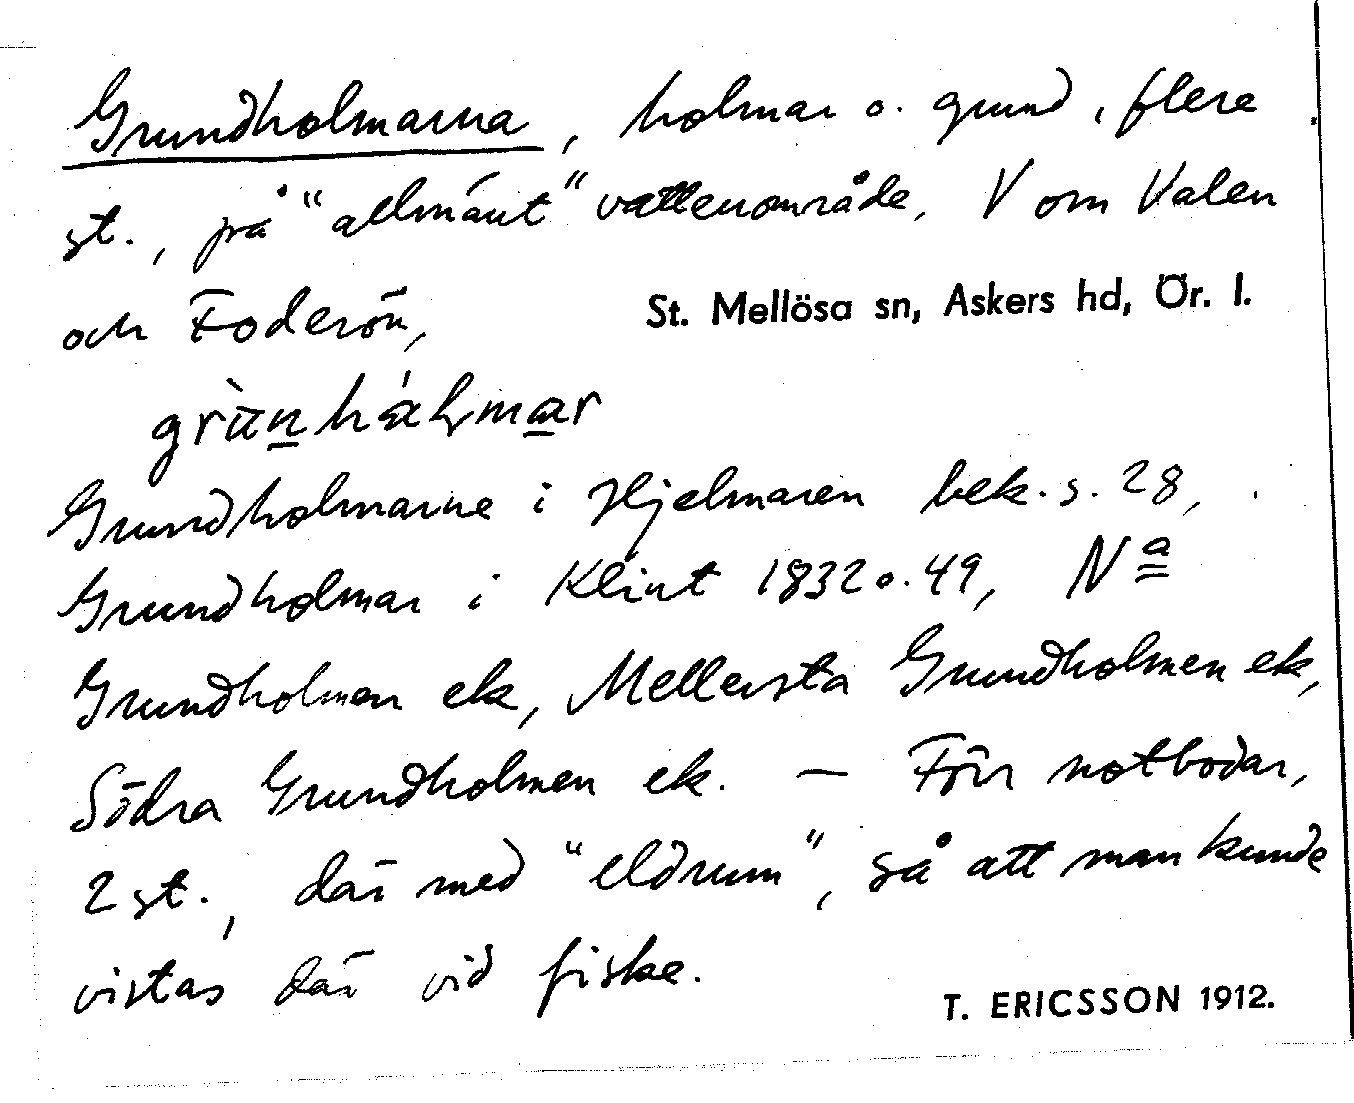 Grundholmarna, holmar o. grund, flere
st., på "allmänt" vattenområde, V om Valen
och Foderön,
St. Mellösa sn, Askers hd, Ör. l.
Grundholmarne i Hjelmaren bek. s. 28,
Grundholmar i Klint 1832 o. 49, Na
Grundholmen ek, Mellersta Grundholmen ek,
Södra Grundholmen ek. — Förr notbodar,
2 st., där med "eldrum", så att man kunde
vistas där vid fiske.
T. ERICSSON 1912.